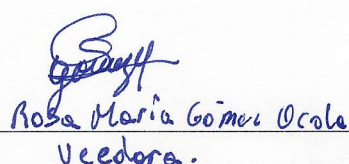 Rosa María Gómez Ocola
Veedora.